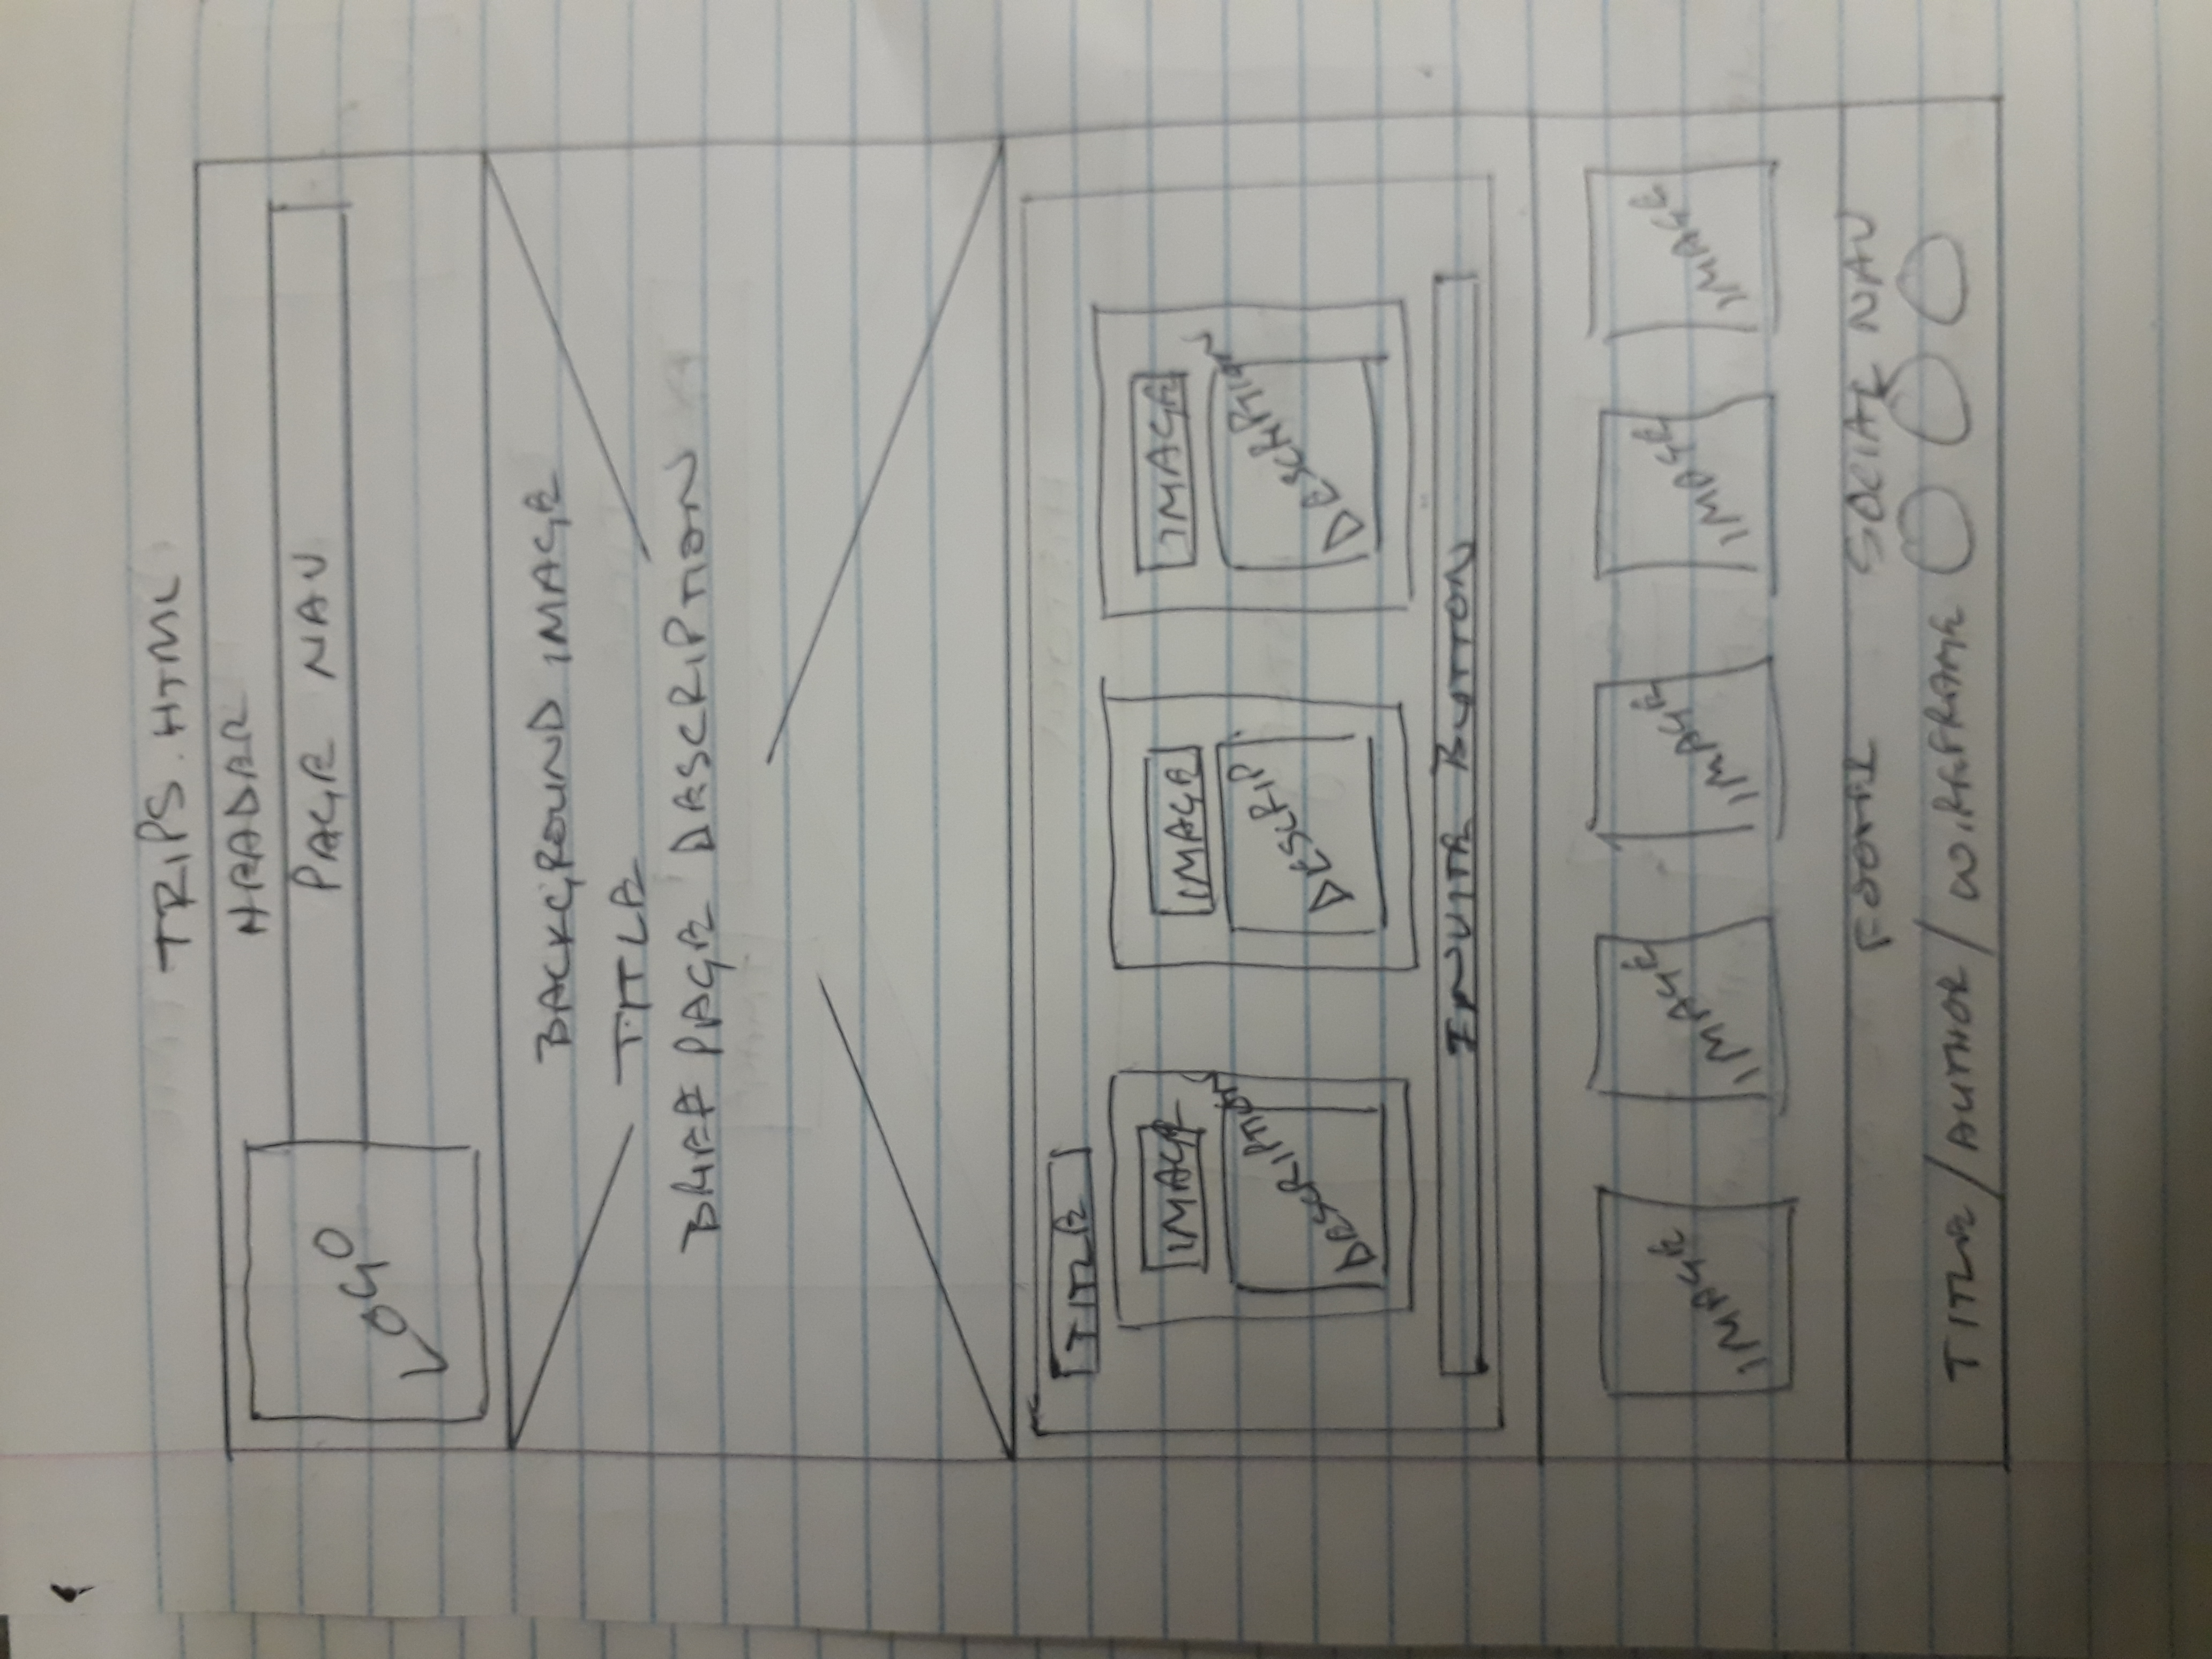 TRIPS.HTML
HEADER
LOGO
PAGE NAV
BACKGROUND IMAGE
TITLE
BRIEF PAGE DESCRIPTION
TITLE
IMAGE IMAGE IMAGE
DESCRIPTION DESCRIP DESCRIPTION
INVITE BUTTON
IMAGE IMAGE IMAGE IMAGE IMAGE
FOOTER SOCIAL NAV
TITLE/AUTHOR/WIREFRAME